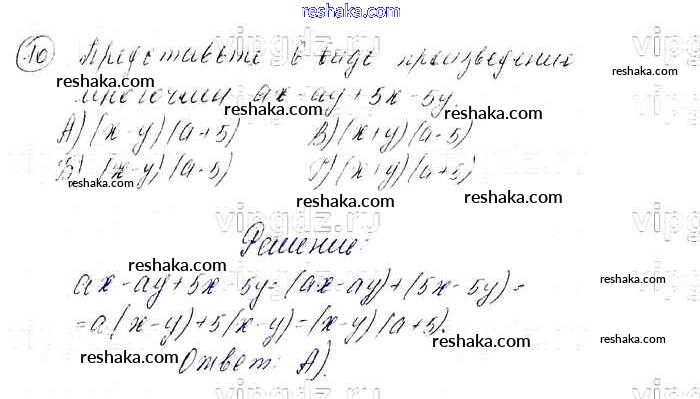 reshaka.com
10 Представьте в виде произведения
reshaka.com reshaka.com reshaka.com
многочлен ax - ay + 5x - 5y.
А) (x - y) (a + 5) В) (x + y) (a - 5)
reshaka.com reshaka.com
Б) (x - y) (a - 5) Г) (x + y) (a + 5)
reshaka.com reshaka.com
vipgdz.ru vipgdz.ru
Решение:
reshaka.com reshaka.com
ax - ay + 5x - 5y = (ax - ay) + (5x - 5y) =
reshaka.com reshaka.com
= a (x - y) + 5 (x - y) = (x - y) (a + 5).
reshaka.com reshaka.com reshaka.com
Ответ: А).